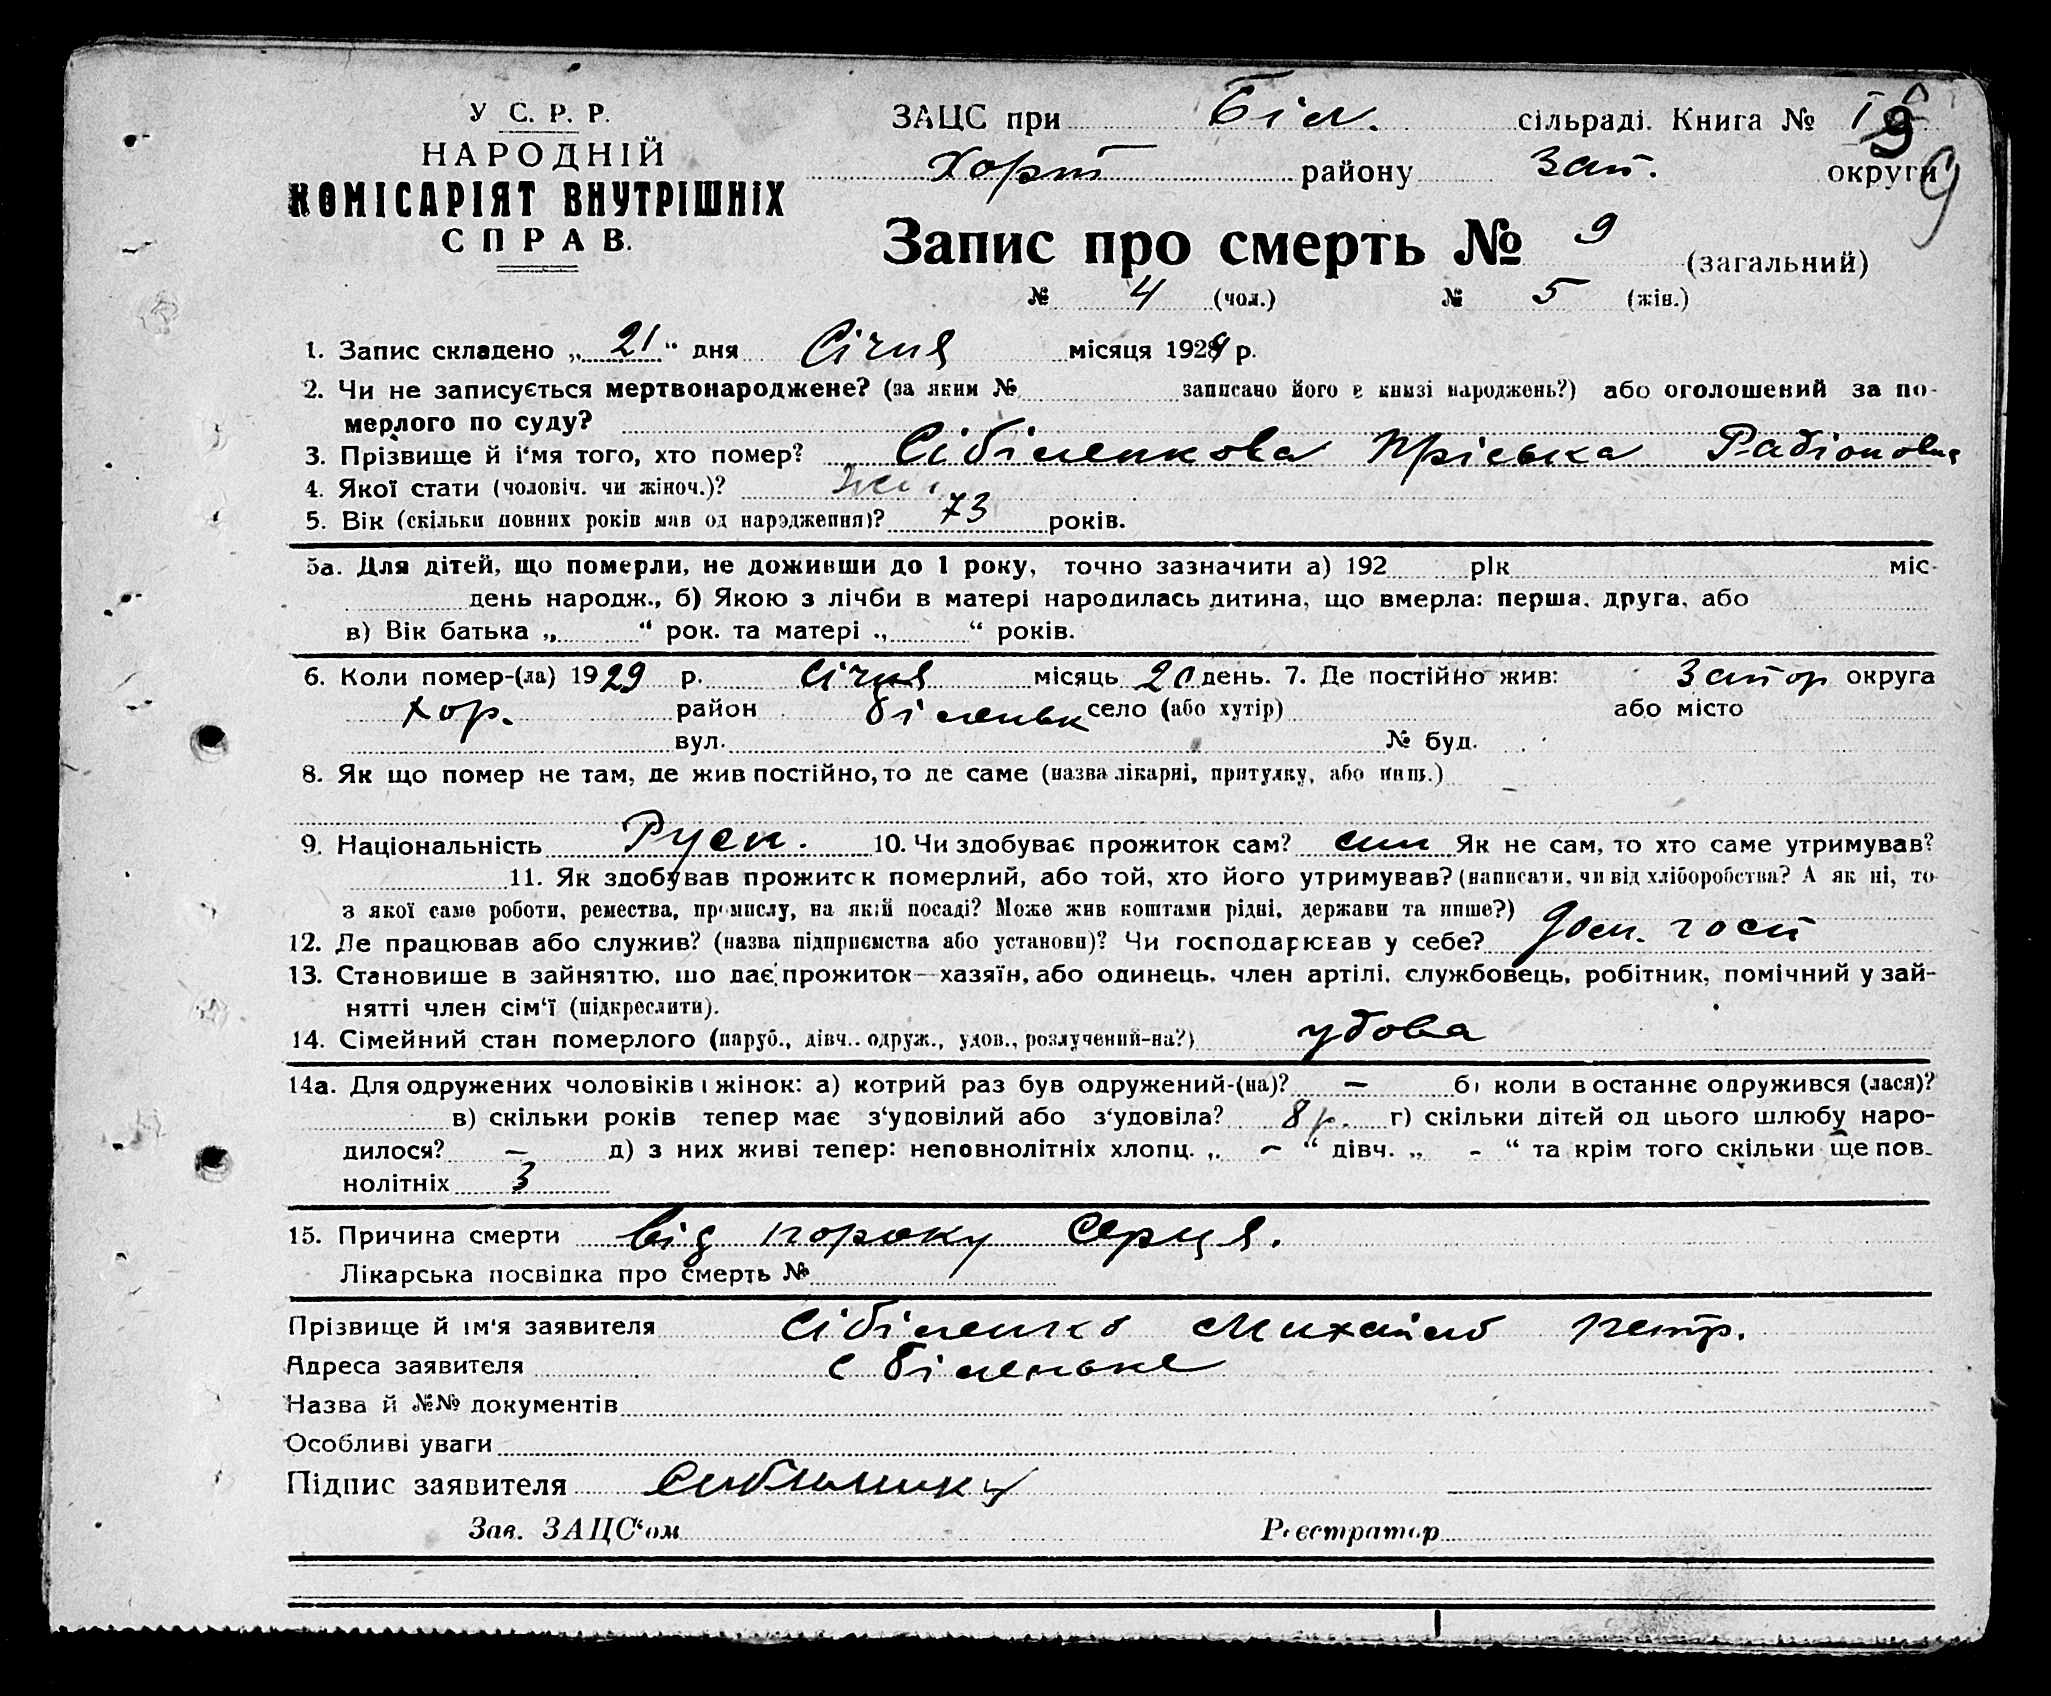 У С. Р. Р.
НАРОДНІЙ
КОМІСАРІЯТ ВНУТРІШНІХ
СПРАВ.
ЗАЦС при Біл. сільраді. Книга № I
9
Хорт району Зап. округи
9
Запис про смерть № 9 (загальний)
№ 4 (чол.) № 5 (жін.)
1. Запис складено „ 21 “ дня Січня місяця 1929 р.
2. Чи не записується мертвонароджене? (за яким № записано його в книзі народжень?) або оголошений за по-
мерлого по суду?
3. Прізвище й і‘мя того, хто помер? Сібіленкова Пріська Радіоновна
4. Якої стати (чоловіч. чи жіноч.)? Жен
5. Вік (скільки повних років мав од народження)? 73 років.
5а. Для дітей, що померли, не доживши до 1 року, точно зазначити а) 192 рік міс-
день народж., б) Якою з лічби в матері народилась дитина, що вмерла: перша, друга, або
в) Вік батька „ “ рок. та матері „ “ років.
6. Коли помер-(ла) 1929 р. Січня місяць 20 день. 7. Де постійно жив: Запор округа
Хор. район біленьк село (або хутір) або місто
вул. № буд.
8. Як що помер не там, де жив постійно, то де саме (назва лікарні, притулку, або инш.)
9. Національність Руск. 10. Чи здобуває прожиток сам? сам Як не сам, то хто саме утримував?
11. Як здобував прожиток померлий, або той, хто його утримував? (написати, чи від хліборобства? А як ні, то
з якої саме роботи, ремества, промислу, на якій посаді? Може жив коштами рідні, держави та инше?)
12. Де працював або служив? (назва підприємства або установи)? Чи господарював у себе? Дом. госп
13. Становище в зайняттю, що дає прожиток—хазяїн, або одинець, член артілі, службовець, робітник, помічний у зай-
нятті член сім‘ї (підкреслити).
14. Сімейний стан померлого (паруб., дівч.. одруж., удов., розлучений-на?) удова
14а. Для одружених чоловіків і жінок: а) котрий раз був одружений-(на)? — б) коли в останнє одружився (лася)?
в) скільки років тепер має з‘удовілий або з‘удовіла? 8 р. г) скільки дітей од цього шлюбу наро-
дилося? — д) з них живі тепер: неповнолітніх хлопц. „ — “ дівч. „ - “ та крім того скільки ще пов-
нолітніх 3
15. Причина смерти від пороку серця.
Лікарська посвідка про смерть №
Прізвище й ім‘я заявителя Сібіленко Михайло петр.
Адреса заявителя с біленьке
Назва й №№ документів
Особливі уваги
Підпис заявителя
Зав. ЗАЦС‘ом Реєстратор